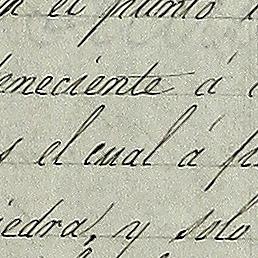 el punto
eneciente á
el cual á
iedra, y solo